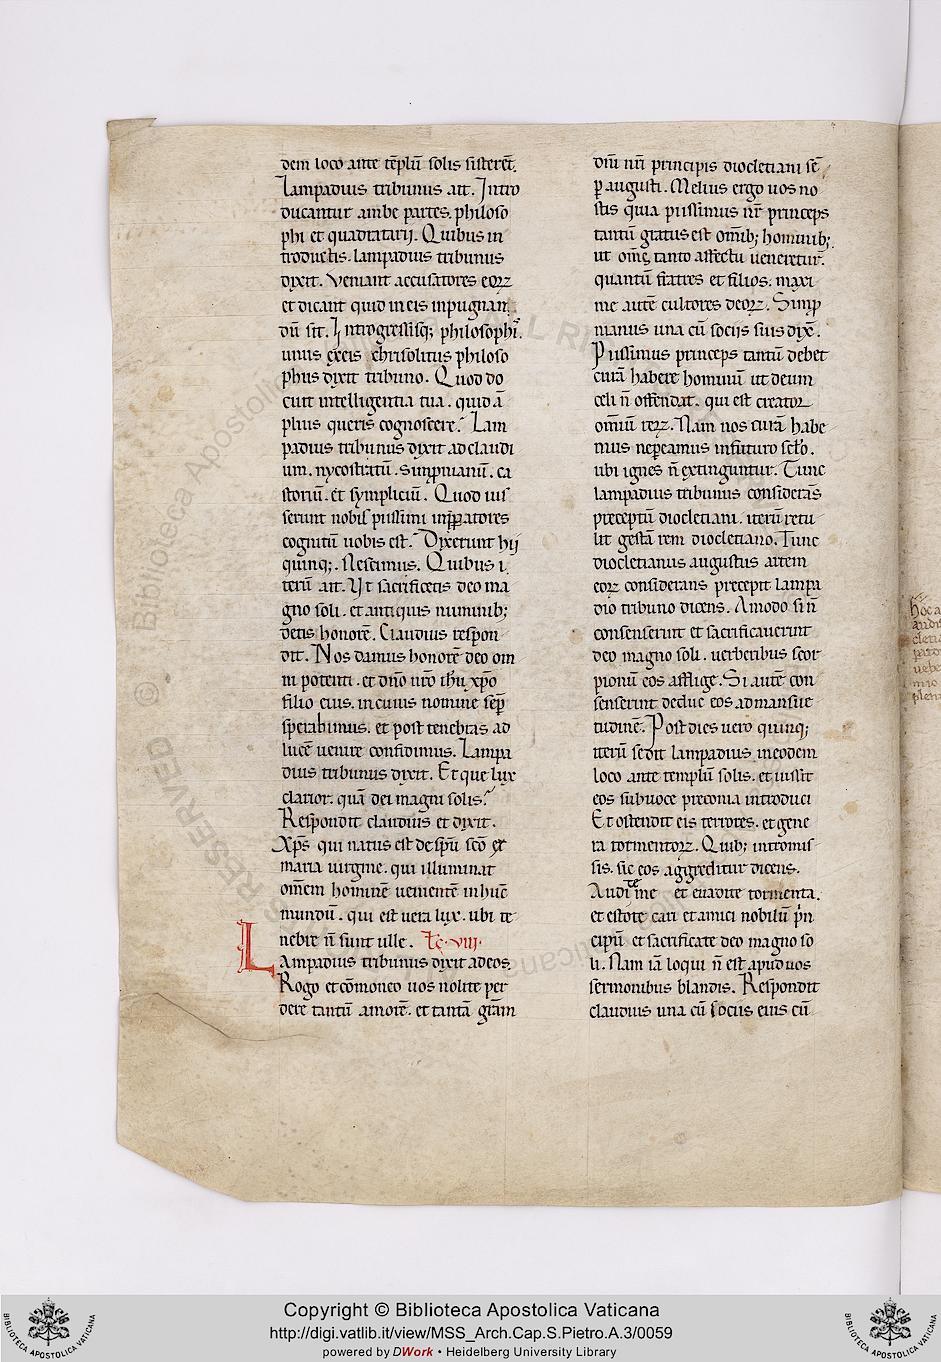 dem loco ante tēplū solis sisteret̄.
Lampadius tribunus ait. Intro
ducantur ambe partes. philoso
phi et quadratarij. Quibus in
troductis. lampadius tribunus
dixit. Veniant accusatores eoꝝ
et dicant quid in eis inpugnan
dū sit. Introgressisq; philosophi.
unus exeis chrisolitus philoso
phus dixit tribuno. Quod do
cuit intelligentia tua. quid ā
plius queris cognoscere? Lam
padius tribunus dixit ad claudi
um. nycostratū. simpnianū. ca
storiū. et sympliciū. Quod ius
serunt nobis piissimi inꝑatores
cognitū uobis est. Dixerunt hij
quinq;. Nescimus. Quibus i
terū ait. Ut sacrificetis deo ma
gno soli. et antiquis numinib;
detis honorē. Claudius respon
dit. Nos damus honorē deo om
ni potenti. et dn̄o nr̄o ih̄u xp̄o
filio eius. in cuius nomine sep̄
sperabimus. et post tenebras ad
lucē uenire confidimus. Lampa
dius tribunus dixit. Et que lux
clarior. quā dei magni solis?
Respondit claudius et dixit.
Xp̄s qui natus est de sp̄u sc̄o ex
maria uirgine. qui illuminat
omēm hominē uenientē in hūc
mundū. qui est uera lux. ubi te
nebre n̄ sunt ulle. Lc̄. viii.
Lampadius tribunus dixit ad eos.
Rogo et cōmoneo uos nolite per
dere tantū amorē. et tantā grām
diū nr̄i principis diocletiani sē
ꝑ augusti. Melius ergo uos no
stis quia piissimus nr̄ princeps
tantū gratus est omīb; hominib;.
ut omēs tanto affectu ueneretur.
quantū fratres et filios. maxi
me autē cultores deoꝝ. Simp
nianus una cū socijs suis dixē.
Piissimus princeps tantū debet
curā habere hominū ut deum
celi n̄ offendat. qui est creator
omīū rerꝝ. Nam nos curā habe
mus ne pereamus in futuro sclo.
ubi ignes n̄ extinguntur. Tunc
lampadius tribunus considerās
preceptū diocletiani. iterū retu
lit gestā rem diocletiano. Tunc
diocletianus augustus artem
eoꝝ considerans precepit lampa
dio tribuno dicens. Amodo si n̄
consenserint et sacrificauerint
deo magno soli. uerberibus scor
pionū eos afflige. Si autē con
senserint deduc eos ad mansue
tudinē. Post dies uero quinq;
iterū sedit lampadius in eodem
loco ante templū solis. et iussit
eos sub uoce preconia introduci
Et ostendit eis terrores. et gene
ra tormentoꝝ. Quib; intromis
sis. sic eos aggreditur dicens.
Audite me et euadite tormenta.
et estote cari et amici nobiliū prin
cipū et sacrificate deo magno so
li. Nam iā loqui n̄ est apud uos
sermonibus blandis. Respondit
claudius una cū sociis eius cū
Copyright © Biblioteca Apostolica Vaticana
http://digi.vatlib.it/view/MSS_Arch.Cap.S.Pietro.A.3/0059
powered by DWork • Heidelberg University Library